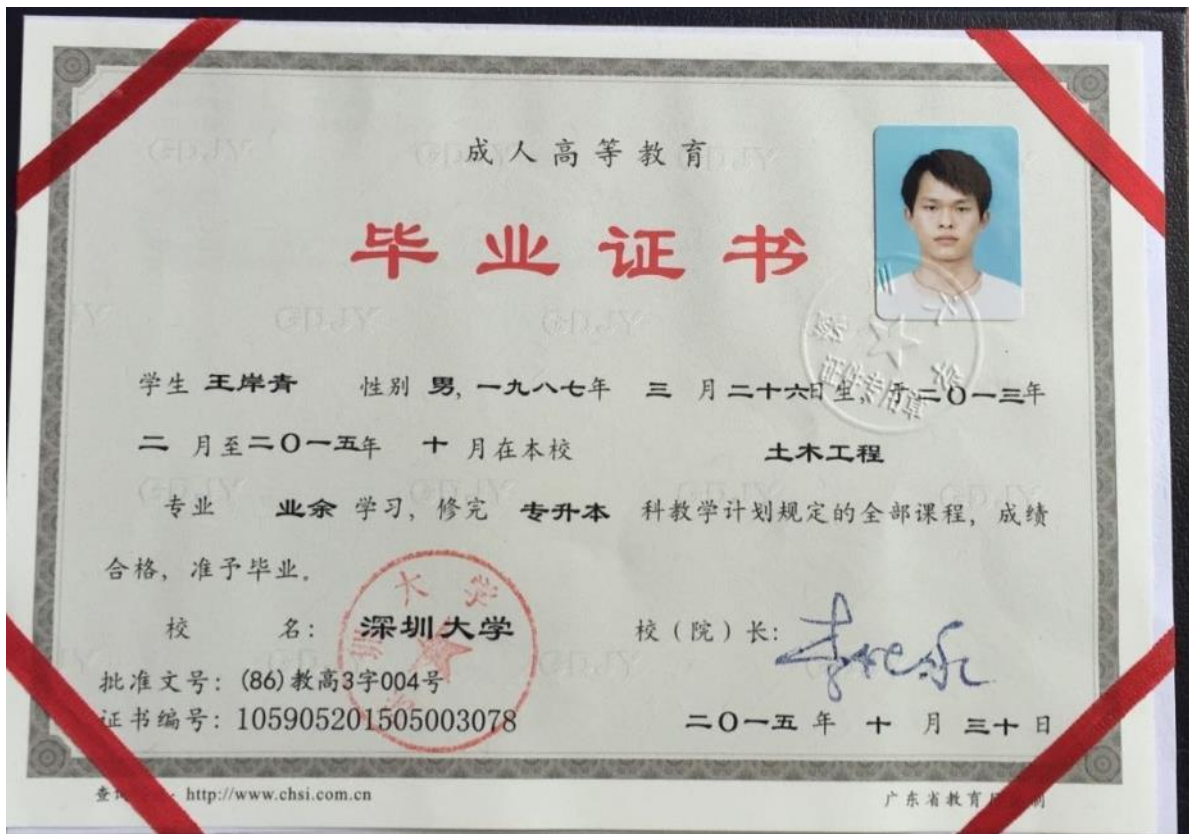 成人高等教育
毕业证书
学生 王岸青 性别 男, 一九八七年 三 月 二十六日生, 于二〇一三年
二 月至二〇一五年 十 月在本校 土木工程
专业 业余 学习, 修完 专升本 科教学计划规定的全部课程, 成绩
合格, 准予毕业。
校 名: 深圳大学 校(院)长: 李清泉
批准文号: (86)教高3字004号
证书编号: 105905201505003078 二〇一五 年 十 月 三十 日
http://www.chsi.com.cn 广东省教育厅
证件专用章
GDJY